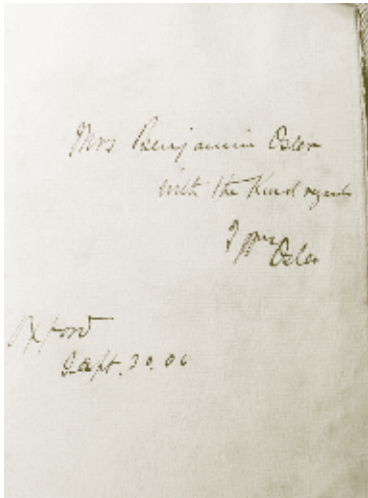 Mrs Benjamin Osler
with the kind regards
of Wm
Osler
Oxford
Sept. 30. 06